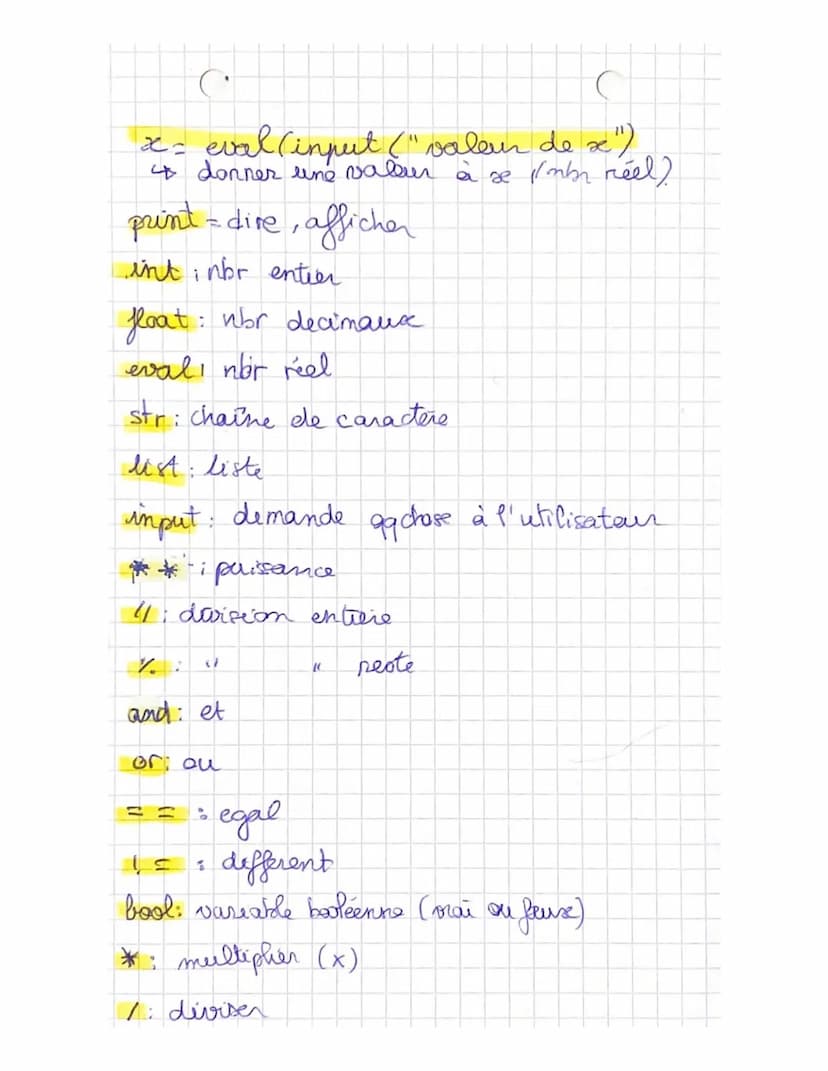 x = eval(input("valeur de x")
↳ donner une valeur à x (nbr réel)
print = dire, afficher
int : nbr entier
float : nbr decimaux
eval : nbr réel
str : chaîne de caractère
list : liste
input : demande qqchose à l'utilisateur
** : puissance
// : division entière
% : " " reste
and : et
or : ou
== : egal
!= : different
bool : variable booléenne (vrai ou faux)
* : multiplier (x)
/ : diviser